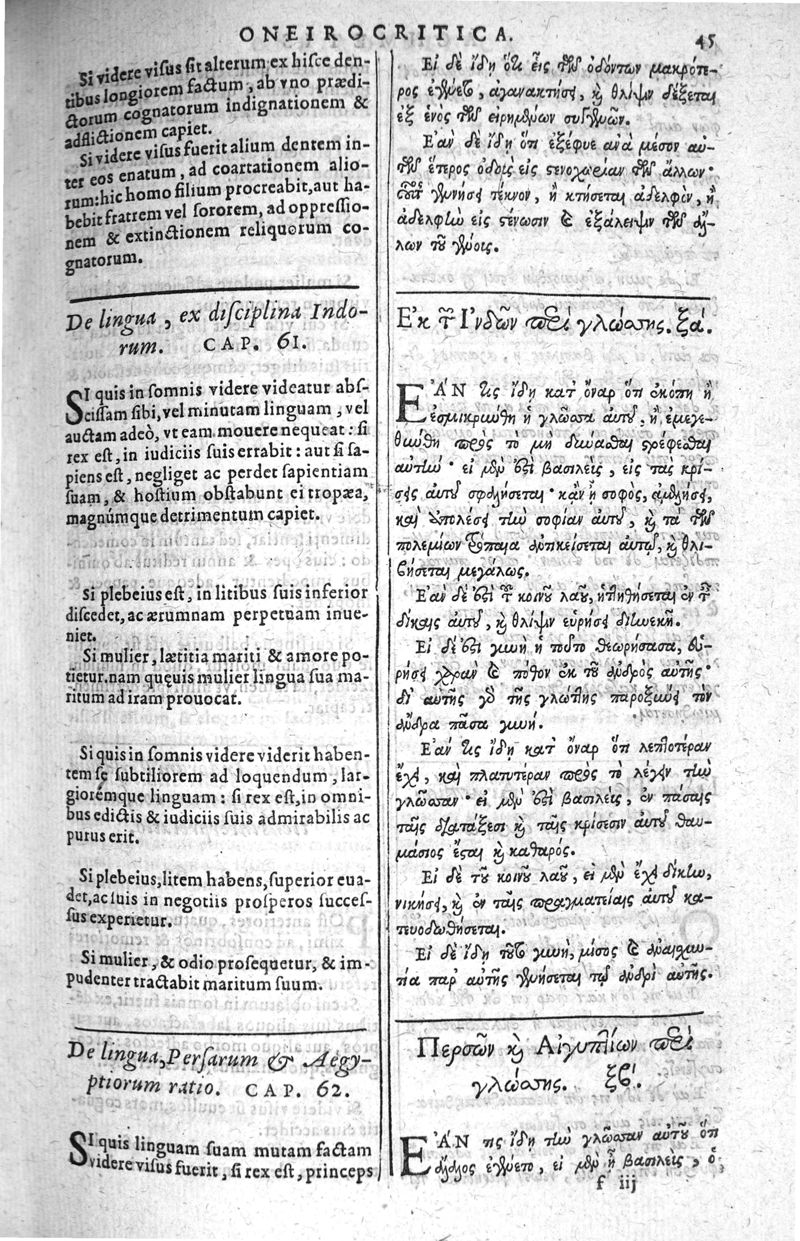 ONEIROCRITICA.
45
Si videre visus sit alterum ex hisce den-
tibus longiorem factum, ab vno prædi-
ctorum cognatorum indignationem &
adflictionem capiet.
Si videre visus fuerit alium dentem in-
ter eos enatum, ad coartationem alio-
rum: hic homo filium procreabit, aut ha-
bebit fratrem vel sororem, ad oppressio-
nem & extinctionem reliquorum co-
gnatorum.
De lingua, ex disciplina Indo-
rum. CAP. 61.
SI quis in somnis videre videatur abs-
cissam sibi, vel minutam linguam, vel
auctam adeò, vt eam mouere nequeat: si
rex est, in iudiciis suis errabit: aut si sa-
piens est, negliget ac perdet sapientiam
suam, & hostium obstabunt ei tropæa,
magnúmque detrimentum capiet.
Si plebeius est, in litibus suis inferior
discedet, ac ærumnam perpetuam inue-
niet.
Si mulier, lætitia mariti & amore po-
tietur. nam quęuis mulier lingua sua ma-
ritum ad iram prouocat.
Si quis in somnis videre viderit haben-
tem se subtiliorem ad loquendum, lar-
giorémque linguam: si rex est, in omni-
bus edictis & iudiciis suis admirabilis ac
purus erit.
Si plebeius, litem habens, superior eua-
det, ac suis in negotiis prosperos succes-
sus experietur.
Si mulier, & odio prosequetur, & im-
pudenter tractabit maritum suum.
De lingua, Persarum & Aegy-
ptiorum ratio. CAP. 62.
SI quis linguam suam mutam factam
videre visus fuerit, si rex est, princeps
Εἰ δὲ ἴδῃ ὅτι εἷς τῶν ὀδόντων μακρότε-
ρος ἐγένετο, ἀγανάκτησιν καὶ θλίψιν δέξεται
ἐξ ἑνὸς τῶν εἰρημένων συγγενῶν.
Ἐὰν δὲ ἴδῃ ὅτι ἐξέφυε ἀνὰ μέσον αὐ-
τῶν ἕτερος ὀδοὺς εἰς στενοχωρίαν τῶν ἄλλων·
οὗτος γεννήσει τέκνον, ἢ κτήσεται ἀδελφὸν, ἢ
ἀδελφὴν εἰς στένωσιν καὶ ἐξάλειψιν τῶν ἄλ-
λων τοῦ γένους.
Ἐκ τῶν Ἰνδῶν περὶ γλώσσης. ξα΄.
ἘΑΝ τις ἴδῃ κατ᾽ ὄναρ ὅτι ἐκόπη ἢ
ἐσμικρύνθη ἡ γλῶσσα αὐτοῦ, ἢ ἐμεγε-
θύνθη πρὸς τὸ μὴ δύνασθαι στρέφεσθαι
αὐτὴν· εἰ μὲν ἐστὶ βασιλεὺς, εἰς τὰς κρί-
σεις αὐτοῦ σφαλήσεται· κἂν ᾖ σοφὸς, ἀμελήσει,
καὶ ἀπολέσει τὴν σοφίαν αὐτοῦ, καὶ τὰ τῶν
πολεμίων τρόπαια ἀντικείσεται αὐτῷ, καὶ θλι-
βήσεται μεγάλως.
Ἐὰν δὲ ἐστὶ τοῦ κοινοῦ λαοῦ, ἡττηθήσεται ἐν ταῖς
δίκαις αὐτοῦ, καὶ θλίψιν εὑρήσει διηνεκῆ.
Εἰ δὲ ἐστὶ γυνὴ ἡ τοῦτο θεωρήσασα, εὑ-
ρήσει χαρὰν καὶ πόθον ἐκ τοῦ ἀνδρὸς αὐτῆς·
δι᾽ αὐτῆς γὰρ τῆς γλώττης παροξύνει τὸν
ἄνδρα πᾶσα γυνή.
Ἐάν τις ἴδῃ κατ᾽ ὄναρ ὅτι λεπτοτέραν
ἔχει, καὶ πλατυτέραν πρὸς τὸ λέγειν τὴν
γλῶσσαν· εἰ μὲν ἐστὶ βασιλεὺς, ἐν πάσαις
ταῖς διατάξεσι καὶ ταῖς κρίσεσιν αὐτοῦ θαυ-
μάσιος ἔσται καὶ καθαρός.
Εἰ δὲ τοῦ κοινοῦ λαοῦ, εἰ μὲν ἔχει δίκην,
νικήσει, καὶ ἐν ταῖς πραγματείαις αὐτοῦ κα-
τευοδωθήσεται.
Εἰ δὲ ἴδῃ τοῦτο γυνὴ, μῖσος καὶ ἀναισχυν-
τία παρ᾽ αὐτῆς γενήσεται τῷ ἀνδρὶ αὐτῆς.
Περσῶν καὶ Αἰγυπτίων περὶ
γλώσσης. ξβ΄.
ἘΑΝ τις ἴδῃ τὴν γλῶσσαν αὐτοῦ ὅτι
ἄλαλος ἐγένετο, εἰ μὲν ᾖ βασιλεὺς, ὁ
f iij